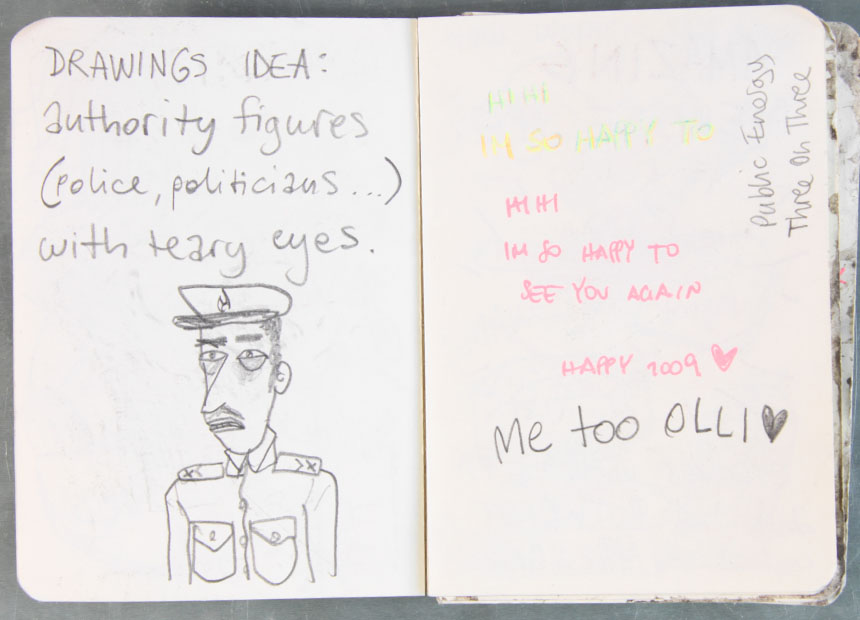 DRAWINGS IDEA:
authority figures
(police, politicians ...)
with teary eyes.
HI HI
IM SO HAPPY TO
HI HI
IM SO HAPPY TO
SEE YOU AGAIN
HAPPY 2009
Me too OLLI
Public Energy
Three On Three